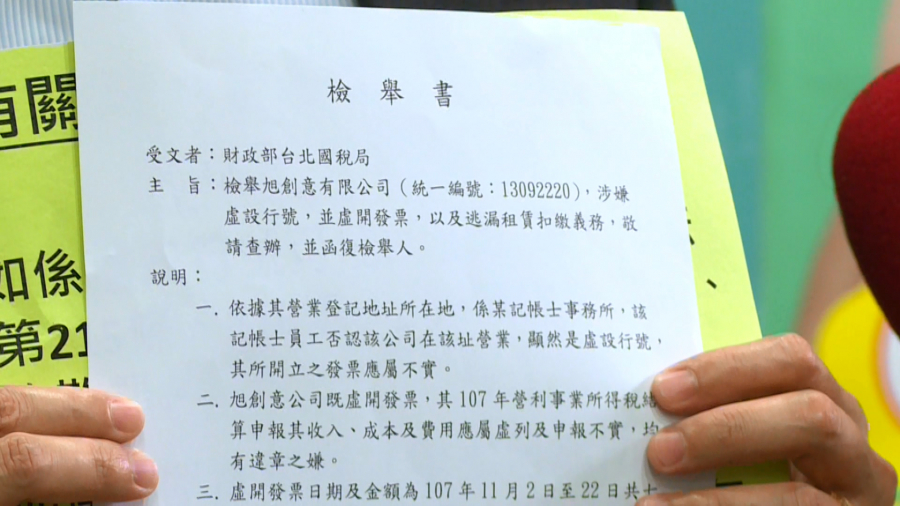 檢舉書
受文者：財政部台北國稅局
主　旨：檢舉旭創意有限公司（統一編號：13092220），涉嫌
虛設行號，並虛開發票，以及逃漏租賃扣繳義務，敬
請查辦，並函復檢舉人。
說明：
一. 依據其營業登記地址所在地，係某記帳士事務所，該
記帳士員工否認該公司在該址營業，顯然是虛設行號，
其所開立之發票應屬不實。
二. 旭創意公司既虛開發票，其107年營利事業所得稅結
算申報其收入、成本及費用應屬虛列及申報不實，均
有違章之嫌。
三. 虛開發票日期及金額為107年11月2日至22日共七
有關
如係
第21